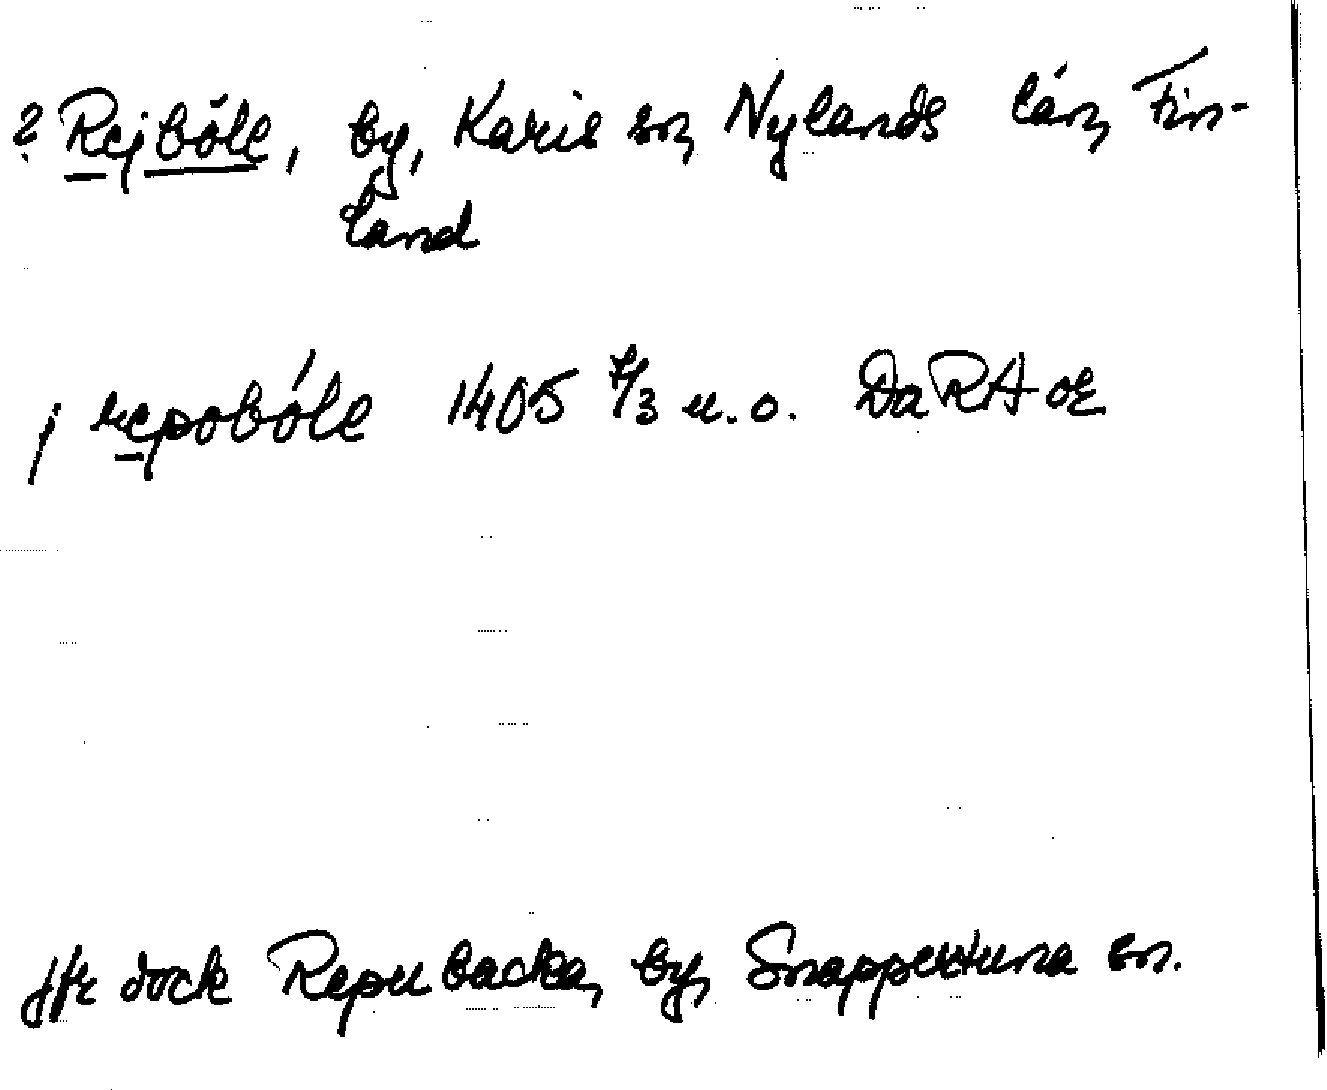 ? Rejböle, by, Karis sn, Nylands län, Fin-
land
j repoböle 1405 7/3 u.o. DaRA or
jfr dock Repubacka, by, Snappertuna sn.